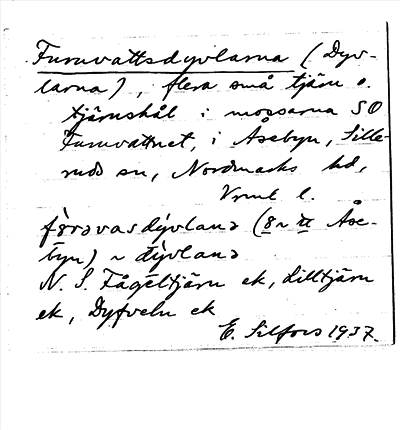 Furuvattsdyvlarna (Dyv-
larna), flera små tjärn o.
tjärnshål i mossarna SO
Furuvattnet, i Åsebyn, Sille-
ruds sn, Nordmarks hd,
Vrml l.
(8 ~ Åse-
byn) ~
N. S. Fågeltjärn ek, Lilltjärn
ek, Dyfveln ek
E. Silfors 1937.